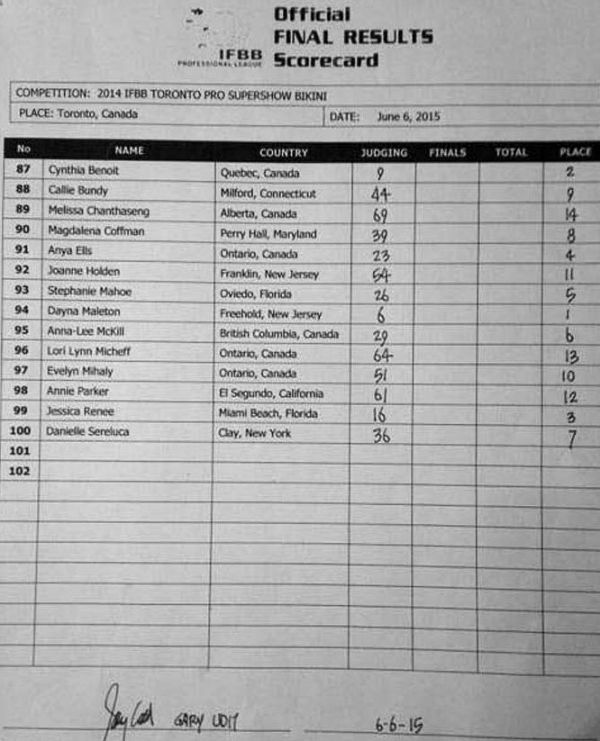 Official
FINAL RESULTS
Scorecard
IFBB
PROFESSIONAL LEAGUE
COMPETITION: 2014 IFBB TORONTO PRO SUPERSHOW BIKINI
PLACE: Toronto, Canada DATE: June 6, 2015
No NAME COUNTRY JUDGING FINALS TOTAL PLACE
87 Cynthia Benoit Quebec, Canada 9 2
88 Callie Bundy Milford, Connecticut 44 9
89 Melissa Chanthaseng Alberta, Canada 69 14
90 Magdalena Coffman Perry Hall, Maryland 39 8
91 Anya Ells Ontario, Canada 23 4
92 Joanne Holden Franklin, New Jersey 54 11
93 Stephanie Mahoe Oviedo, Florida 26 5
94 Dayna Maleton Freehold, New Jersey 6 1
95 Anna-Lee McKill British Columbia, Canada 29 6
96 Lori Lynn Micheff Ontario, Canada 64 13
97 Evelyn Mihaly Ontario, Canada 51 10
98 Annie Parker El Segundo, California 61 12
99 Jessica Renee Miami Beach, Florida 16 3
100 Danielle Sereluca Clay, New York 36 7
101
102
GARY UDIT 6-6-15